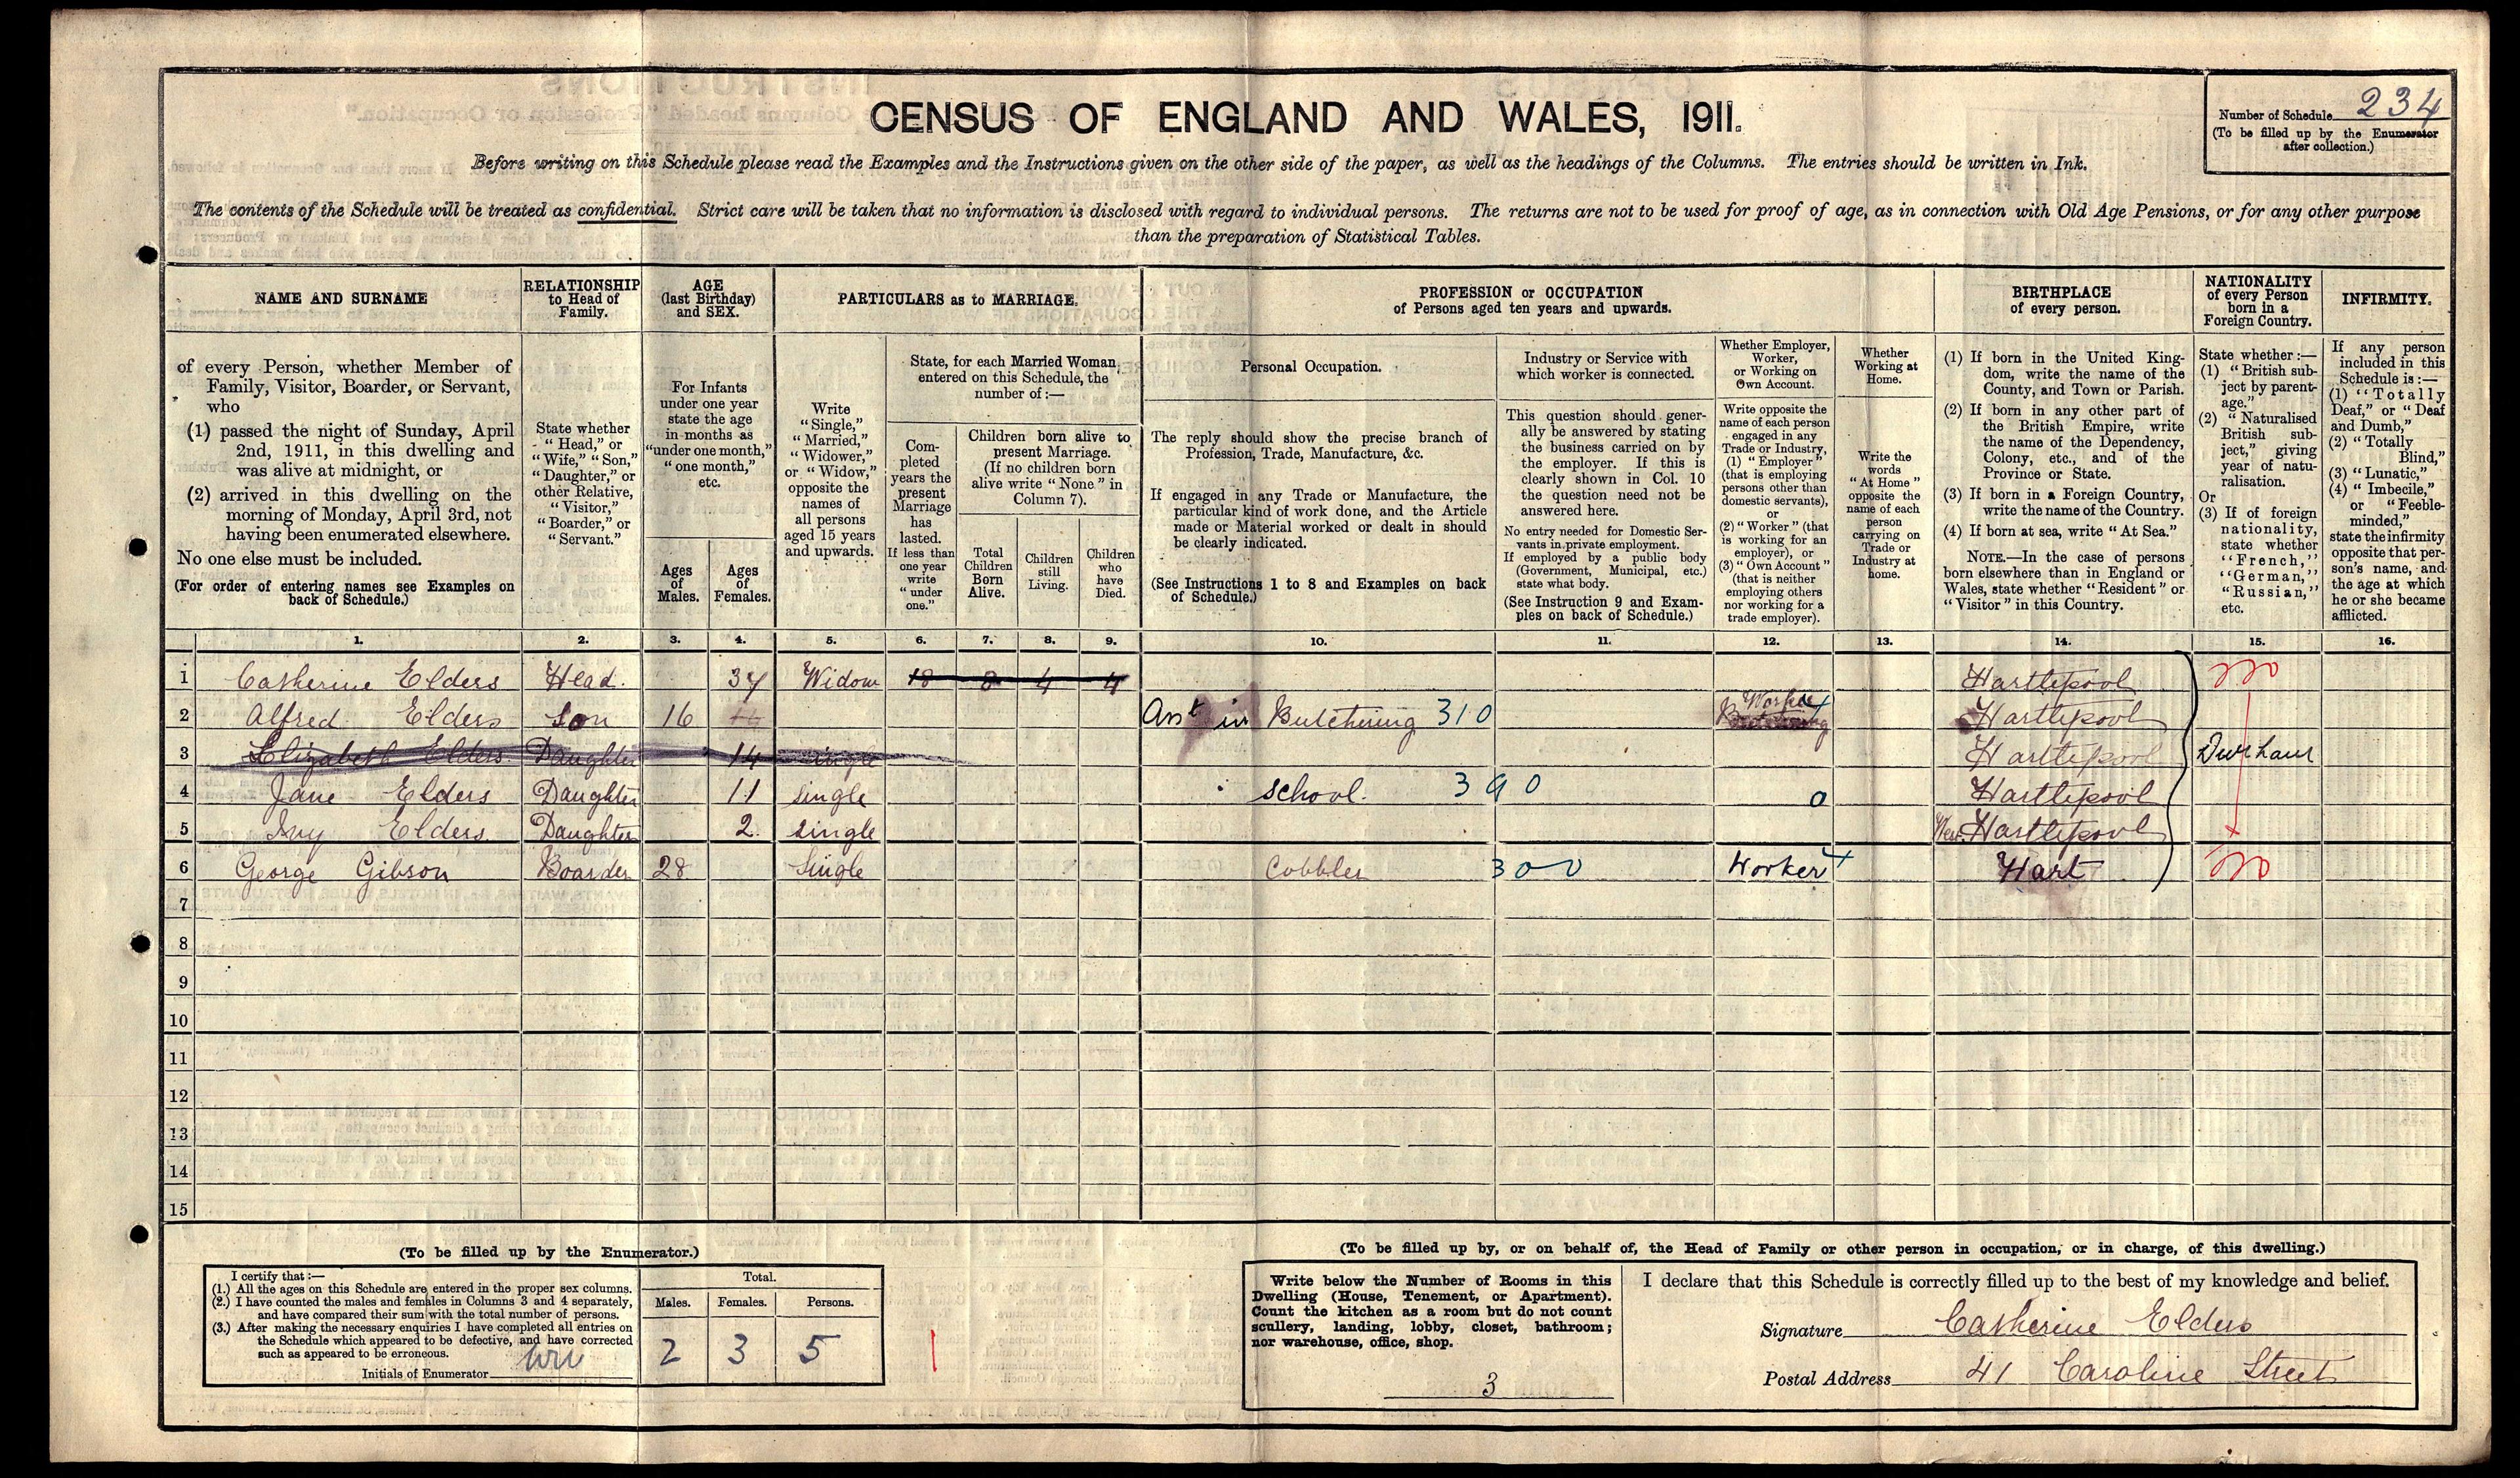 CENSUS OF ENGLAND AND WALES, 1911.
Number of Schedule 234
(To be filled up by the Enumerator
after collection.)
Before writing on this Schedule please read the Examples and the Instructions given on the other side of the paper, as well as the headings of the Columns. The entries should be written in Ink.
The contents of the Schedule will be treated as confidential. Strict care will be taken that no information is disclosed with regard to individual persons. The returns are not to be used for proof of age, as in connection with Old Age Pensions, or for any other purpose
than the preparation of Statistical Tables.
NAME AND SURNAME
of every Person, whether Member of
Family, Visitor, Boarder, or Servant,
who
(1) passed the night of Sunday, April
2nd, 1911, in this dwelling and
was alive at midnight, or
(2) arrived in this dwelling on the
morning of Monday, April 3rd, not
having been enumerated elsewhere.
No one else must be included.
(For order of entering names see Examples on
back of Schedule.)
RELATIONSHIP
to Head of
Family.
State whether
"Head," or
"Wife," "Son,"
"Daughter," or
other Relative,
"Visitor,"
"Boarder," or
"Servant."
AGE
(last Birthday)
and SEX.
For Infants
under one year
state the age
in months as
"under one month,"
"one month,"
etc.
Ages
of
Males.
Ages
of
Females.
PARTICULARS as to MARRIAGE.
Write
"Single,"
"Married,"
"Widower,"
or "Widow,"
opposite the
names of
all persons
aged 15 years
and upwards.
State, for each Married Woman
entered on this Schedule, the
number of:—
Com-
pleted
years the
present
Marriage
has
lasted.
If less than
one year
write
"under
one."
Children born alive to
present Marriage.
(If no children born
alive write "None" in
Column 7).
Total
Children
Born
Alive.
Children
still
Living.
Children
who
have
Died.
PROFESSION or OCCUPATION
of Persons aged ten years and upwards.
Personal Occupation.
The reply should show the precise branch of
Profession, Trade, Manufacture, &c.
If engaged in any Trade or Manufacture, the
particular kind of work done, and the Article
made or Material worked or dealt in should
be clearly indicated.
(See Instructions 1 to 8 and Examples on back
of Schedule.)
Industry or Service with
which worker is connected.
This question should gener-
ally be answered by stating
the business carried on by
the employer. If this is
clearly shown in Col. 10
the question need not be
answered here.
No entry needed for Domestic Ser-
vants in private employment.
If employed by a public body
(Government, Municipal, etc.)
state what body.
(See Instruction 9 and Exam-
ples on back of Schedule.)
Whether Employer,
Worker,
or Working on
Own Account.
Write opposite the
name of each person
engaged in any
Trade or Industry,
(1) "Employer"
(that is employing
persons other than
domestic servants),
or
(2) "Worker" (that
is working for an
employer), or
(3) "Own Account"
(that is neither
employing others
nor working for a
trade employer).
Whether
Working at
Home.
Write the
words
"At Home"
opposite the
name of each
person
carrying on
Trade or
Industry at
home.
BIRTHPLACE
of every person.
(1) If born in the United King-
dom, write the name of the
County, and Town or Parish.
(2) If born in any other part of
the British Empire, write
the name of the Dependency,
Colony, etc., and of the
Province or State.
(3) If born in a Foreign Country,
write the name of the Country.
(4) If born at sea, write "At Sea."
NOTE.—In the case of persons
born elsewhere than in England or
Wales, state whether "Resident" or
"Visitor" in this Country.
NATIONALITY
of every Person
born in a
Foreign Country.
State whether:—
(1) "British sub-
ject by parent-
age."
(2) "Naturalised
British sub-
ject," giving
year of natu-
ralisation.
Or
(3) If of foreign
nationality,
state whether
"French,"
"German,"
"Russian,"
etc.
INFIRMITY.
If any person
included in this
Schedule is:—
(1) "Totally
Deaf," or "Deaf
and Dumb,"
(2) "Totally
Blind,"
(3) "Lunatic,"
(4) "Imbecile,"
or "Feeble-
minded,"
state the infirmity
opposite that per-
son's name, and
the age at which
he or she became
afflicted.
1. 2. 3. 4. 5. 6. 7. 8. 9. 10. 11. 12. 13. 14. 15. 16.
1 Catherine Elders Head. 37 Widow 18 8 4 4 Hartlepool 220
2 Alfred Elders Son 16 Asst in Butchering 310 Worker Hartlepool
3 Elizabeth Elders Daughter 14 single Hartlepool Durham
4 Jane Elders Daughter 11 single school. 390 0 Hartlepool
5 Ivy Elders. Daughter 2. single West Hartlepool
6 George Gibson Boarder 28 Single Cobbler 300 Worker Hart 220
7
8
9
10
11
12
13
14
15
(To be filled up by the Enumerator.)
I certify that:—
(1.) All the ages on this Schedule are entered in the proper sex columns.
(2.) I have counted the males and females in Columns 3 and 4 separately,
and have compared their sum with the total number of persons.
(3.) After making the necessary enquiries I have completed all entries on
the Schedule which appeared to be defective, and have corrected
such as appeared to be erroneous.
Initials of Enumerator
Total.
Males. Females. Persons.
2 3 5
(To be filled up by, or on behalf of, the Head of Family or other person in occupation, or in charge, of this dwelling.)
Write below the Number of Rooms in this
Dwelling (House, Tenement, or Apartment).
Count the kitchen as a room but do not count
scullery, landing, lobby, closet, bathroom;
nor warehouse, office, shop.
3
I declare that this Schedule is correctly filled up to the best of my knowledge and belief.
Signature Catherine Elders
Postal Address 41 Caroline Street